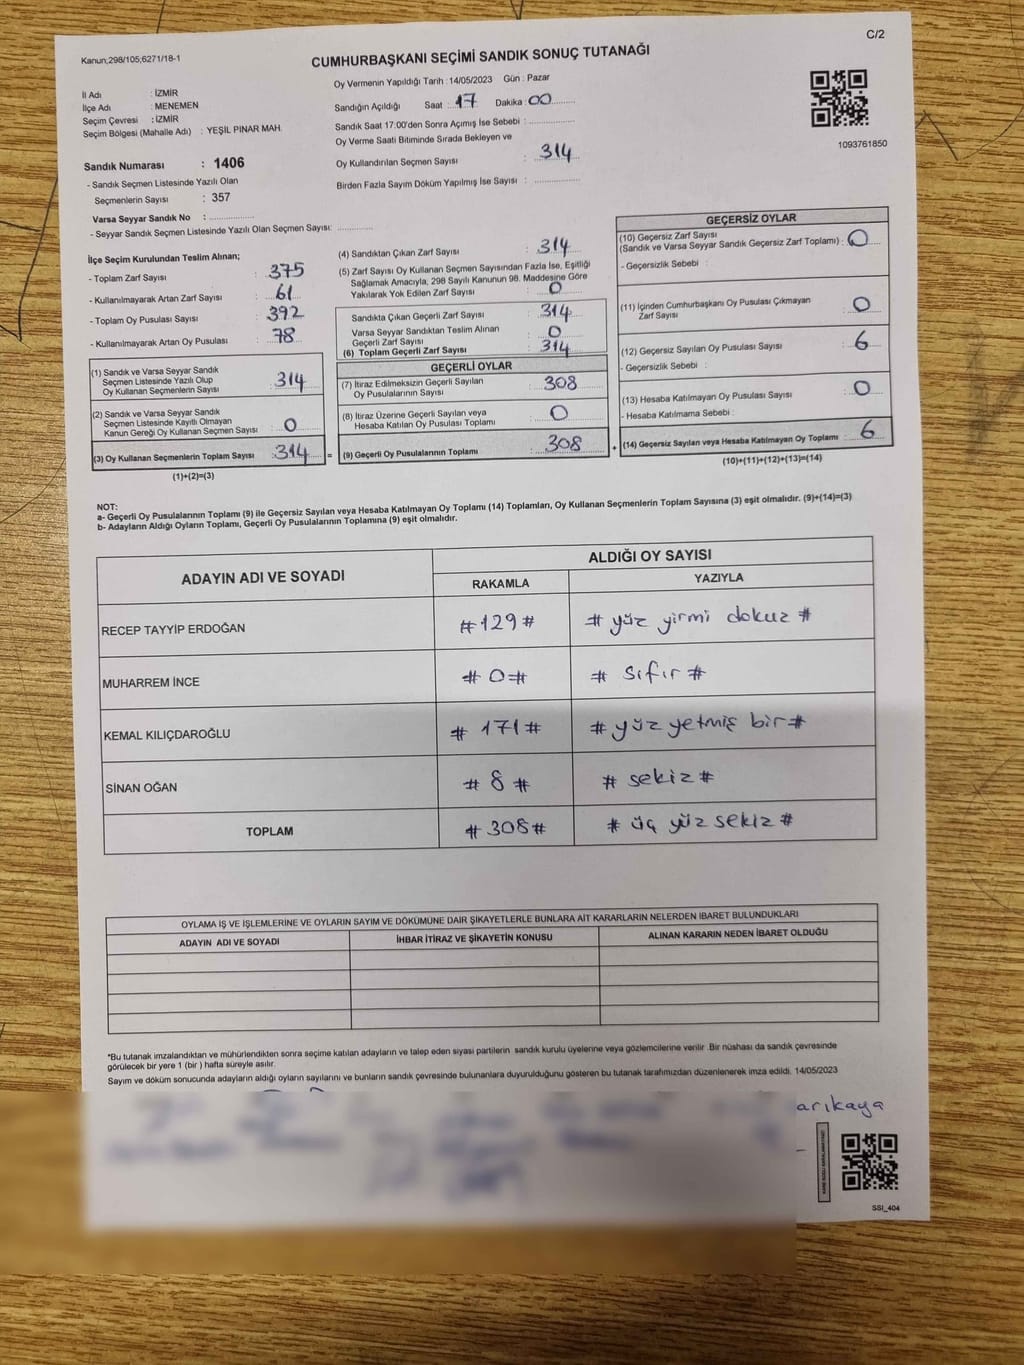 Kanun,298/105,6271/18-1
CUMHURBAŞKANI SEÇİMİ SANDIK SONUÇ TUTANAĞI
C/2
İl Adı : İZMİR
İlçe Adı : MENEMEN
Seçim Çevresi : İZMİR
Seçim Bölgesi (Mahalle Adı) : YEŞİL PINAR MAH.
Sandık Numarası : 1406
- Sandık Seçmen Listesinde Yazılı Olan
Seçmenlerin Sayısı : 357
Varsa Seyyar Sandık No : ..............
- Seyyar Sandık Seçmen Listesinde Yazılı Olan Seçmen Sayısı: ............
Oy Vermenin Yapıldığı Tarih : 14/05/2023 Gün : Pazar
Sandığın Açıldığı Saat : 17 Dakika : 00
Sandık Saat 17:00'den Sonra Açımış İse Sebebi : ..............
Oy Verme Saati Bitiminde Sırada Bekleyen ve
Oy Kullandırılan Seçmen Sayısı : 314
Birden Fazla Sayım Döküm Yapılmış İse Sayısı : ..............
1093761850
İlçe Seçim Kurulundan Teslim Alınan;
- Toplam Zarf Sayısı : 375
- Kullanılmayarak Artan Zarf Sayısı : 61
- Toplam Oy Pusulası Sayısı : 392
- Kullanılmayarak Artan Oy Pusulası : 78
(1) Sandık ve Varsa Seyyar Sandık
Seçmen Listesinde Yazılı Olup
Oy Kullanan Seçmenlerin Sayısı : 314
(2) Sandık ve Varsa Seyyar Sandık
Seçmen Listesinde Kayıtlı Olmayan
Kanun Gereği Oy Kullanan Seçmen Sayısı : 0
(3) Oy Kullanan Seçmenlerin Toplam Sayısı : 314 =
(1)+(2)=(3)
(4) Sandıktan Çıkan Zarf Sayısı : 314
(5) Zarf Sayısı Oy Kullanan Seçmen Sayısından Fazla İse, Eşitliği
Sağlamak Amacıyla, 298 Sayılı Kanunun 98. Maddesine Göre
Yakılarak Yok Edilen Zarf Sayısı : 0
Sandıkta Çıkan Geçerli Zarf Sayısı : 314
Varsa Seyyar Sandıktan Teslim Alınan
Geçerli Zarf Sayısı : 0
(6) Toplam Geçerli Zarf Sayısı : 314
GEÇERLİ OYLAR
(7) İtiraz Edilmeksizin Geçerli Sayılan
Oy Pusulalarının Sayısı : 308
(8) İtiraz Üzerine Geçerli Sayılan veya
Hesaba Katılan Oy Pusulası Toplamı : 0
(9) Geçerli Oy Pusulalarının Toplamı : 308 +
GEÇERSİZ OYLAR
(10) Geçersiz Zarf Sayısı
(Sandık ve Varsa Seyyar Sandık Geçersiz Zarf Toplamı) : 0
- Geçersizlik Sebebi :
(11) İçinden Cumhurbaşkanı Oy Pusulası Çıkmayan
Zarf Sayısı : 0
(12) Geçersiz Sayılan Oy Pusulası Sayısı : 6
- Geçersizlik Sebebi :
(13) Hesaba Katılmayan Oy Pusulası Sayısı : 0
- Hesaba Katılmama Sebebi :
(14) Geçersiz Sayılan veya Hesaba Katılmayan Oy Toplamı : 6
(10)+(11)+(12)+(13)=(14)
NOT:
a- Geçerli Oy Pusulalarının Toplamı (9) ile Geçersiz Sayılan veya Hesaba Katılmayan Oy Toplamı (14) Toplamları, Oy Kullanan Seçmenlerin Toplam Sayısına (3) eşit olmalıdır. (9)+(14)=(3)
b- Adayların Aldığı Oyların Toplamı, Geçerli Oy Pusulalarının Toplamına (9) eşit olmalıdır.
ADAYIN ADI VE SOYADI
ALDIĞI OY SAYISI
RAKAMLA YAZIYLA
RECEP TAYYİP ERDOĞAN #129# # yüz yirmi dokuz #
MUHARREM İNCE # 0# # sıfır #
KEMAL KILIÇDAROĞLU # 171 # # yüz yetmiş bir #
SİNAN OĞAN # 8 # # sekiz #
TOPLAM # 308# # üç yüz sekiz #
OYLAMA İŞ VE İŞLEMLERİNE VE OYLARIN SAYIM VE DÖKÜMÜNE DAİR ŞİKAYETLERLE BUNLARA AİT KARARLARIN NELERDEN İBARET BULUNDUKLARI
ADAYIN ADI VE SOYADI İHBAR İTİRAZ VE ŞİKAYETİN KONUSU ALINAN KARARIN NEDEN İBARET OLDUĞU
*Bu tutanak imzalandıktan ve mühürlendikten sonra seçime katılan adayların ve talep eden siyasi partilerin sandık kurulu üyelerine veya gözlemcilerine verilir .Bir nüshası da sandık çevresinde
görülecek bir yere 1 (bir ) hafta süreyle asılır.
Sayım ve döküm sonucunda adayların aldığı oyların sayılarını ve bunların sandık çevresinde bulunanlara duyurulduğunu gösteren bu tutanak tarafımızdan düzenlenerek imza edildi. 14/05/2023
arıkaya
SSI_404